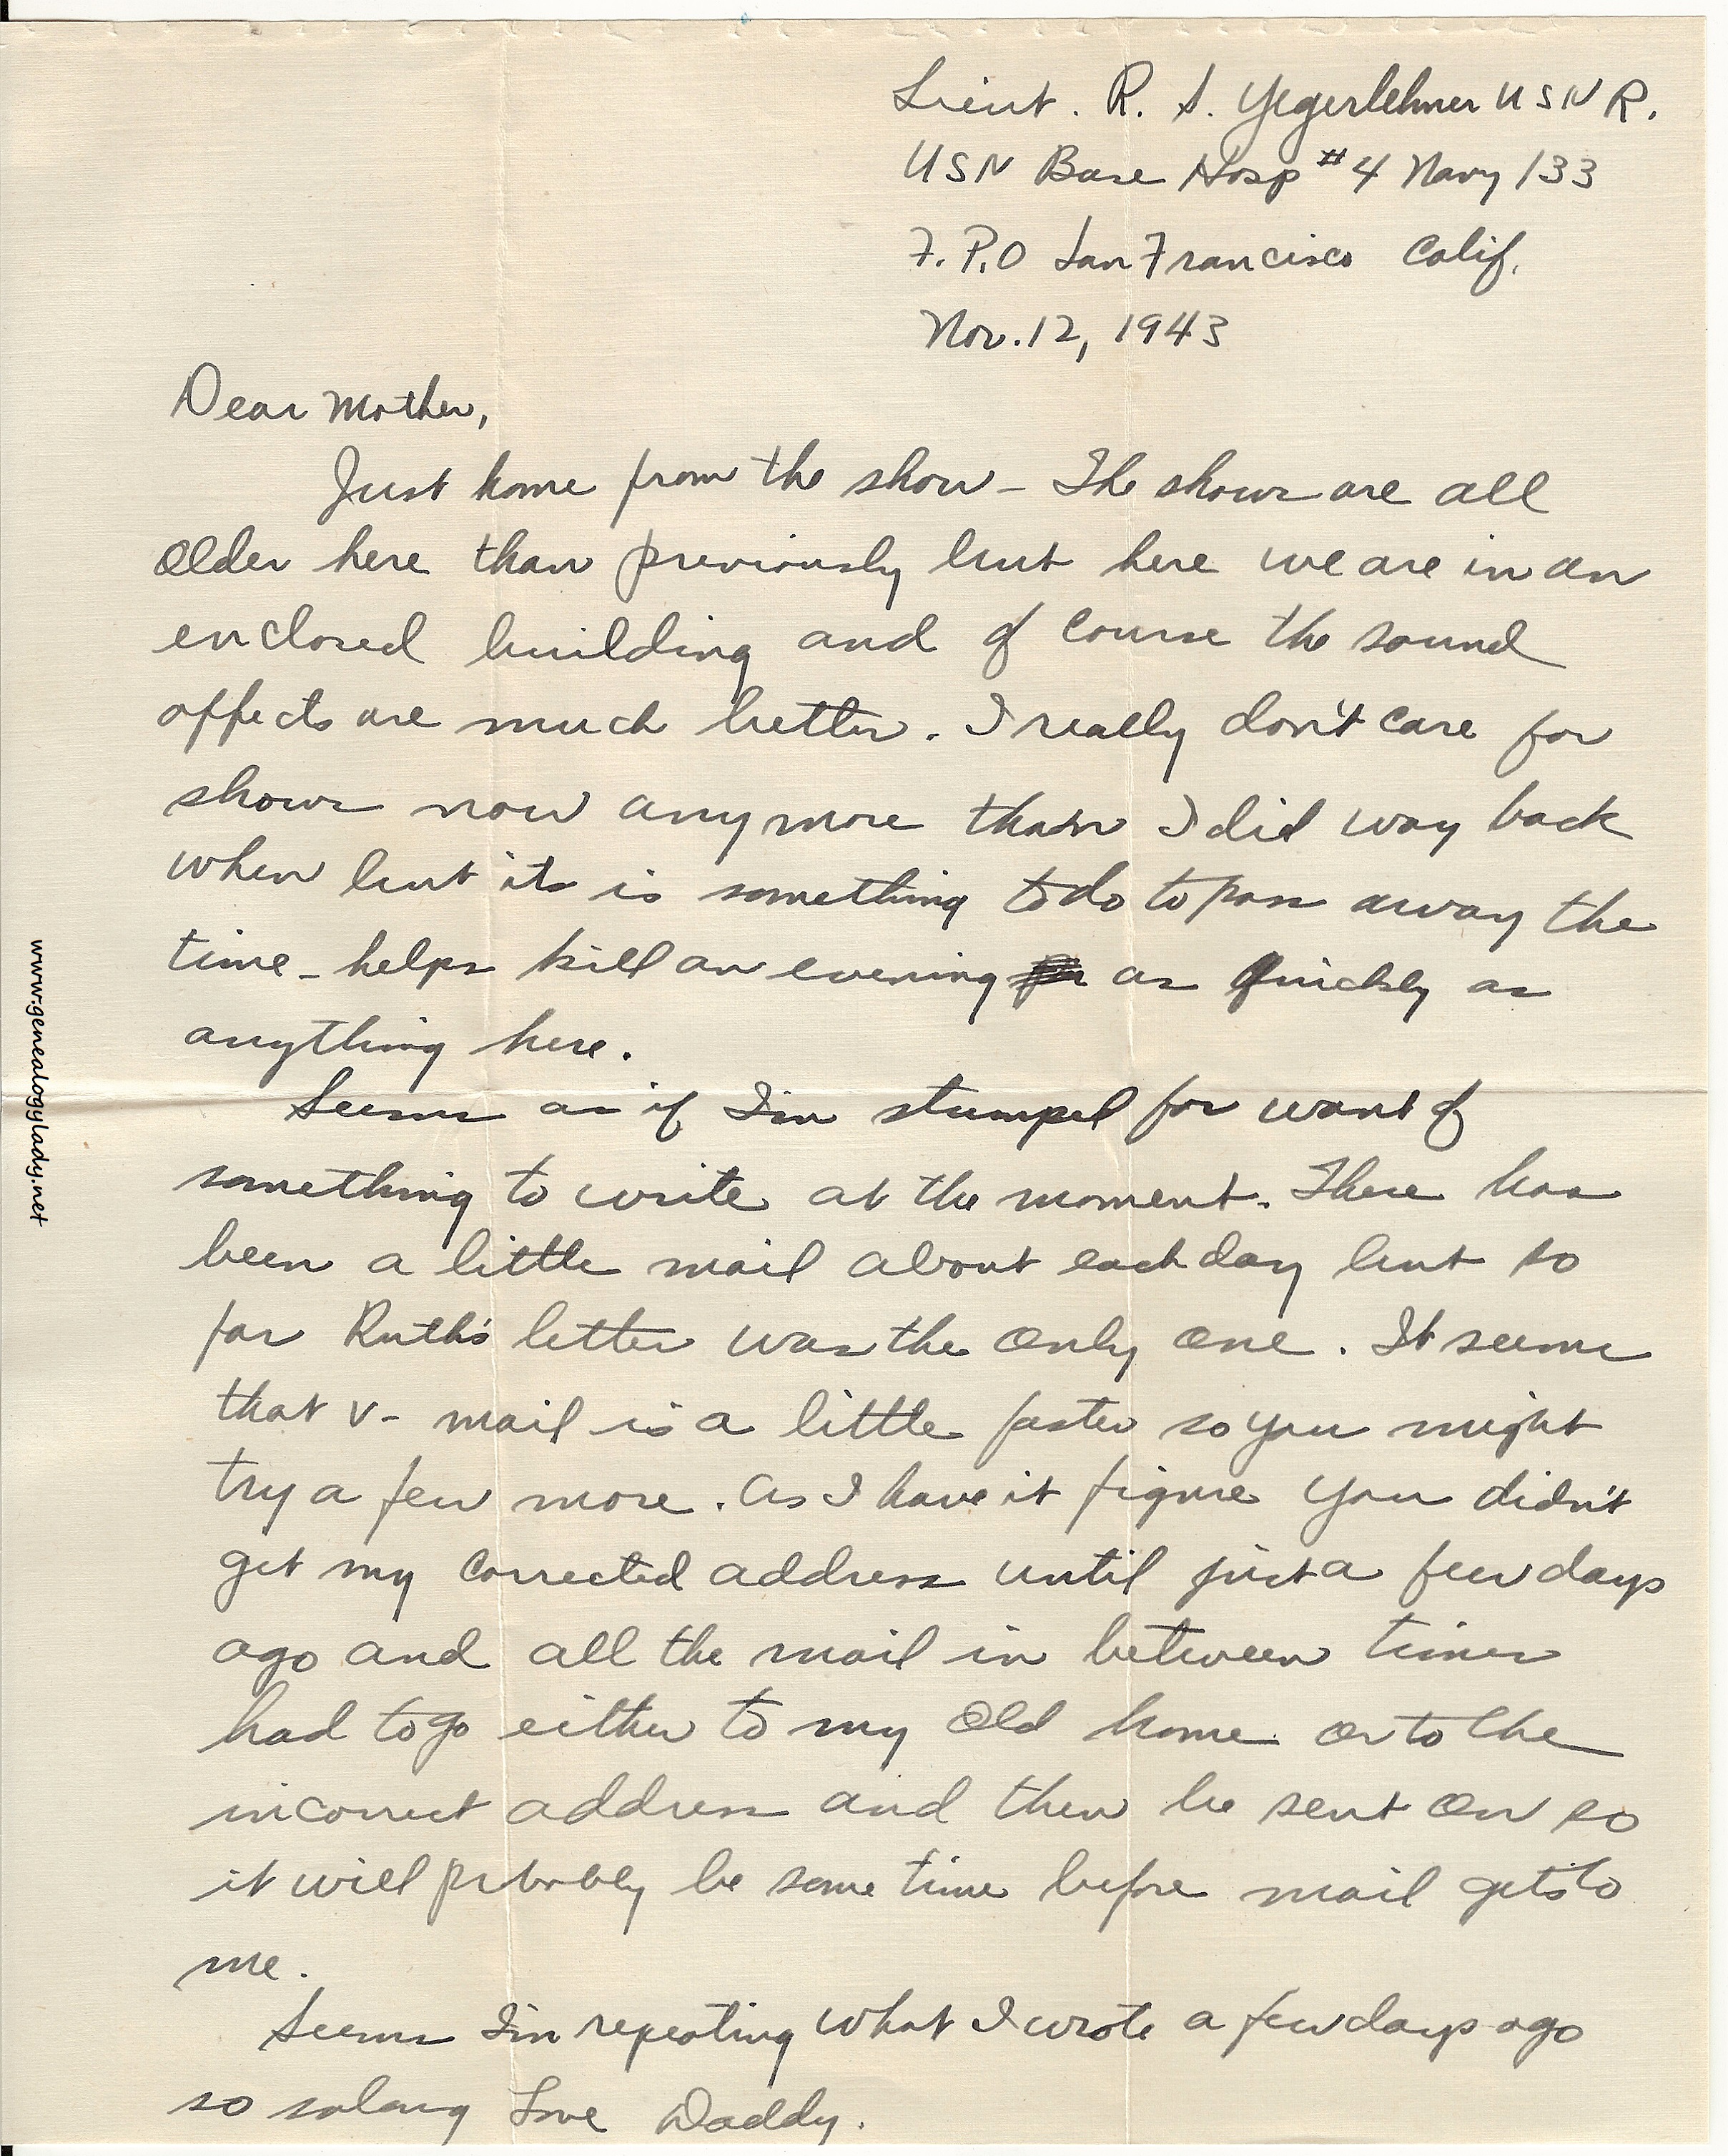 Lieut. R. S. Yegerlehner USNR.
USN Base Hosp #4 Navy 133
F.P.O San Francisco Calif.
Nov. 12, 1943
Dear Mother,
Just home from the show - The shows are all
older here than previously but here we are in an
enclosed building and of course the sound
affects are much better. I really don't care for
shows now anymore than I did way back
when but its is something to do to pass away the
time - helps kill an evening as quickly as
anything here.
Seems as if I'm stumped for want of
something to write at the moment. There has
been a little mail about each day but so
far Ruth's letter was the only one. It seems
that V-mail is a little faster so you might
try a few more. As I have it figure you didn't
get my corrected address until just a few days
ago and all the mail in between times
had to go either to my old home or to the
incorrect address and then be sent on so
it will probably be some time before mail gets to
me.
Seems I'm repeating what I wrote a few days ago
so solong Love Daddy.
www.genealogylady.net